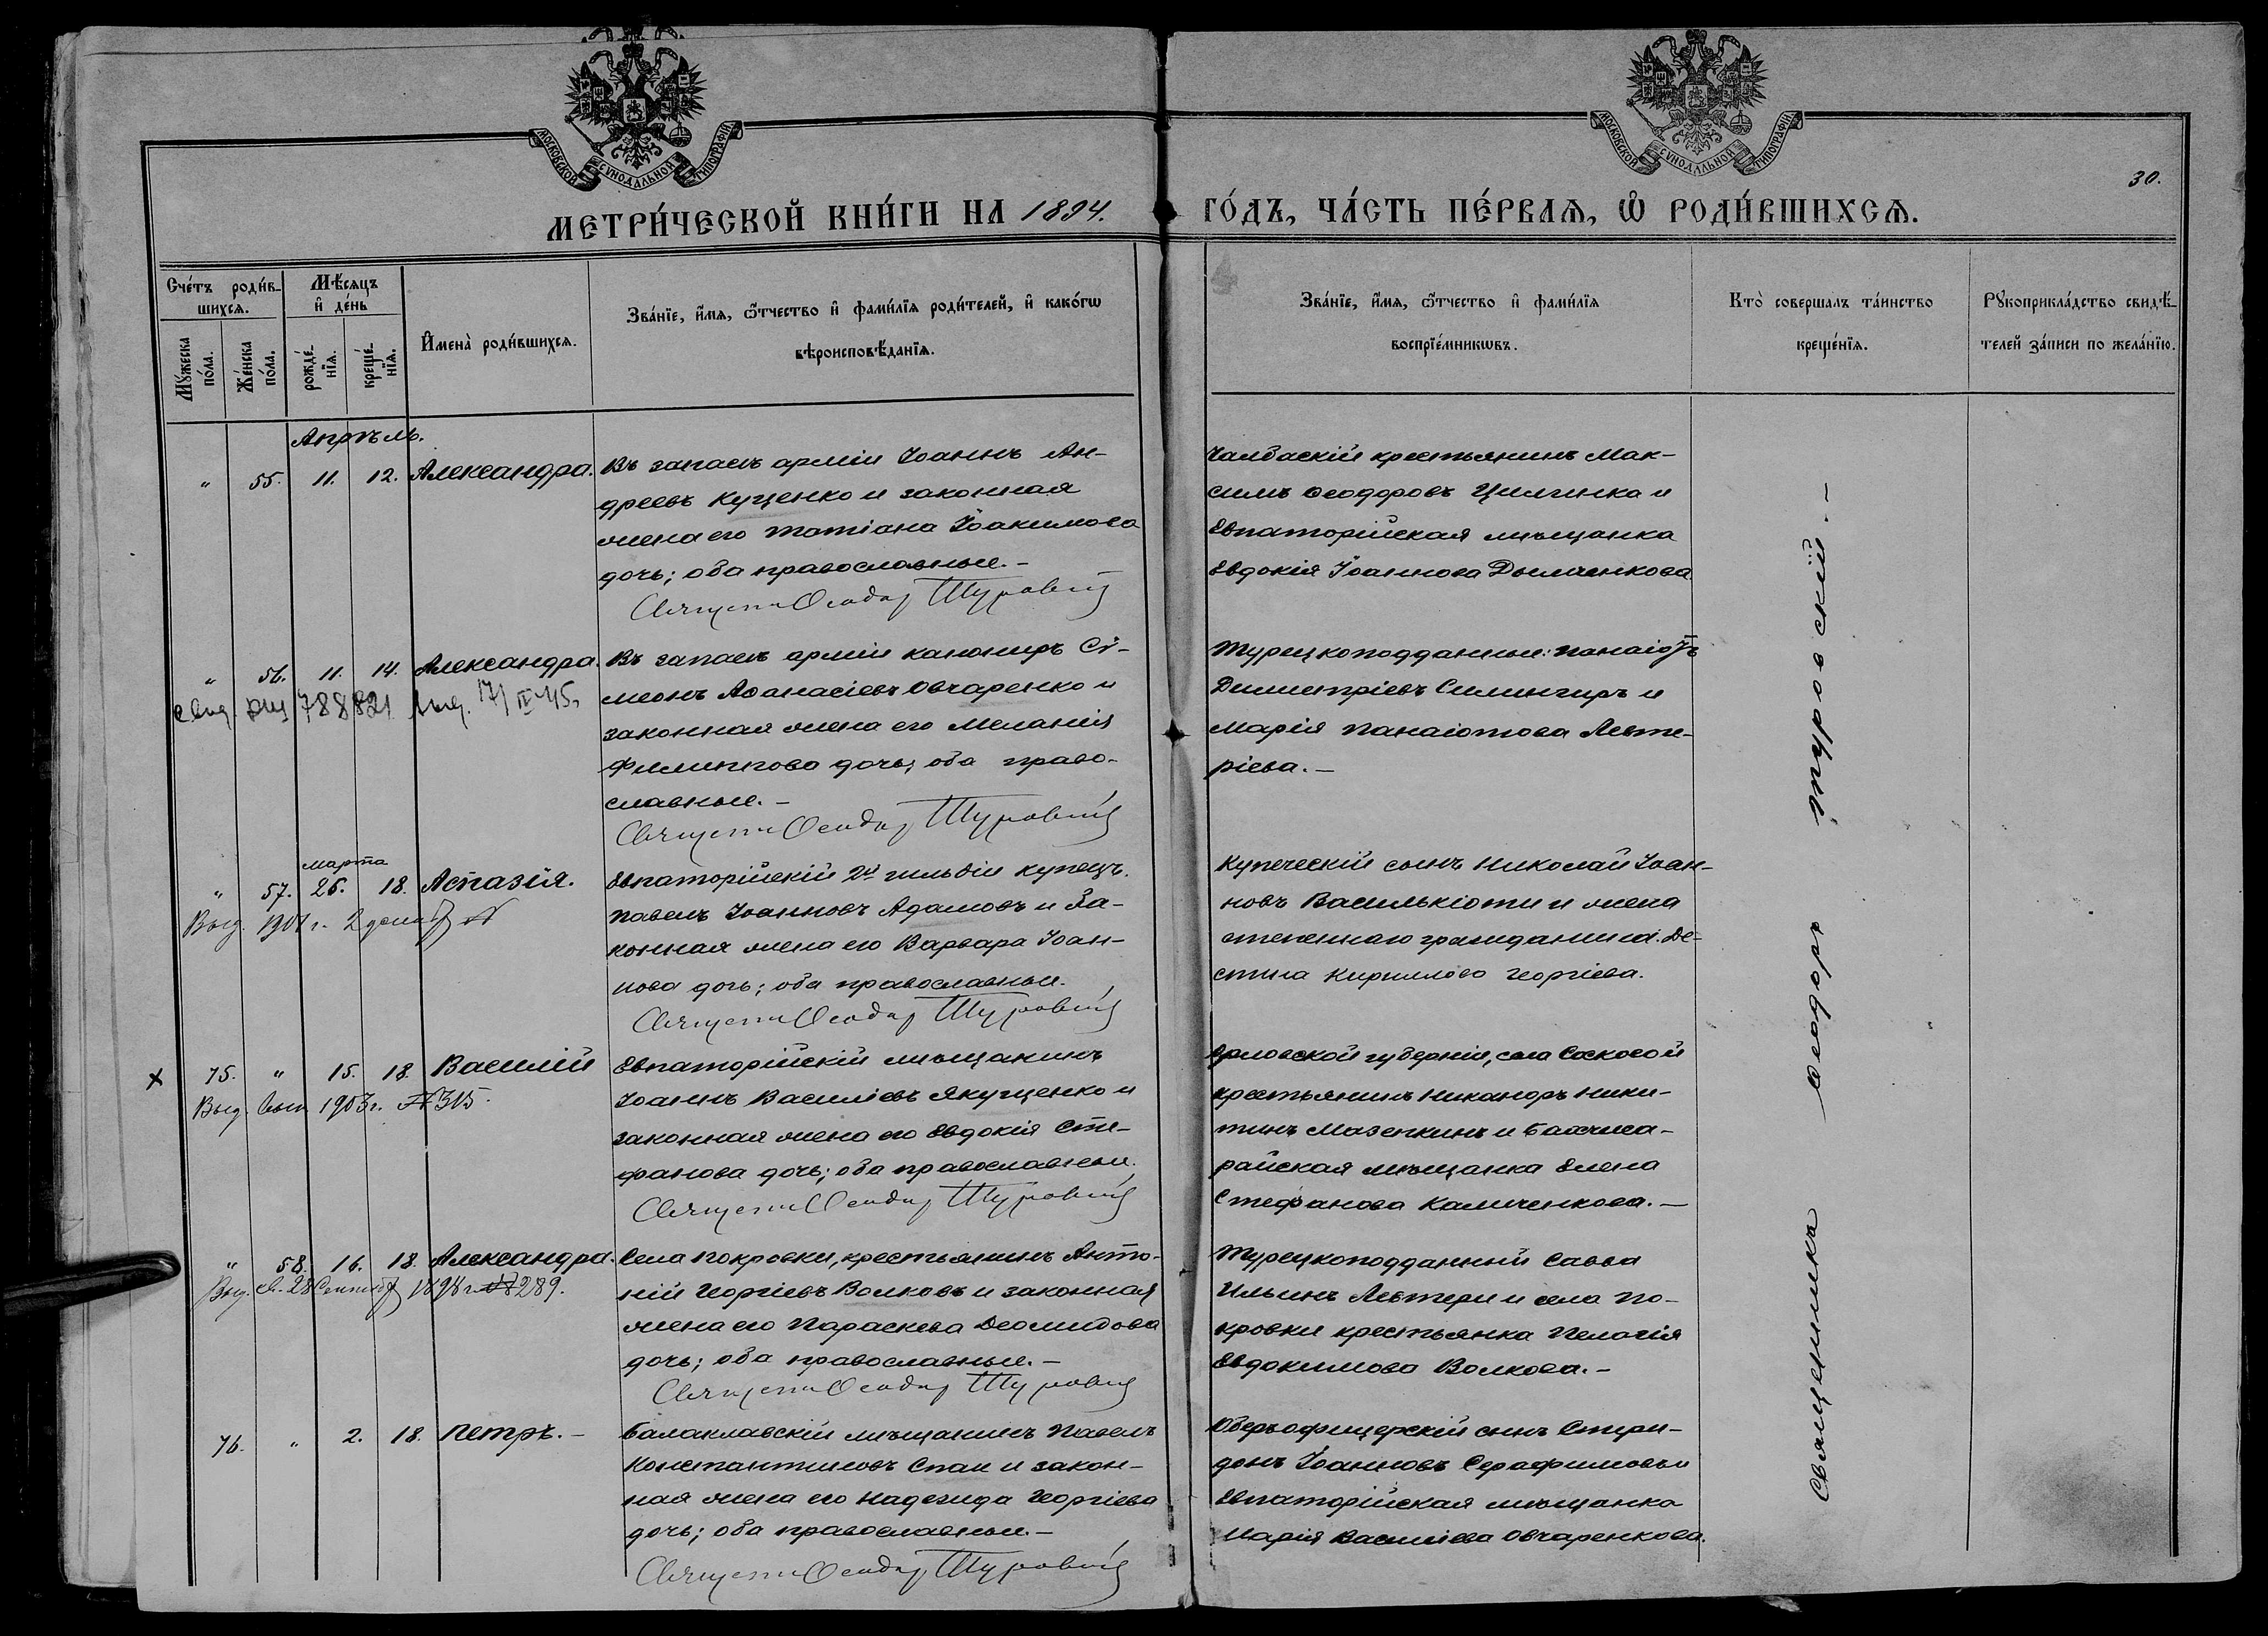 МОСКОВСКОЙ СѴНОДАЛЬНОЙ ТИПОГРАФІИ
МОСКОВСКОЙ СѴНОДАЛЬНОЙ ТИПОГРАФІИ
30.
МЕТРИ́ЧЕСКОЙ КНИ́ГИ НА 1894. ГО́ДЪ, ЧА́СТЬ ПЕ́РВАѦ, Ѽ РОДИ́ВШИХСѦ.
Сче́тъ роди́вшихсѧ.
Мꙋ́жеска по́ла.
Же́нска по́ла.
Мѣ́сѧцъ и҆ де́нь
рожде́нїѧ.
креще́нїѧ.
И҆мена̀ роди́вшихсѧ.
Зва́нїе, и҆́мѧ, ѻ҆́тчество и҆ фами́лїѧ роди́телей, и҆ како́гѡ
вѣроисповѣ́данїѧ.
Зва́нїе, и҆́мѧ, ѻ҆́тчество и҆ фами́лїѧ
воспрїе́мникѡвъ.
Кто̀ соверша́лъ та́инство
креще́нїѧ.
Рꙋкоприкла́дство свидѣ́-
телей за́писи по жела́нїю.
Апрѣль.
" 55. 11. 12. Александра.
Въ запасѣ арміи Іоаннъ Ан-
дреевъ Куценко и законная
жена его Татіана Іоакимова
дочь; оба православные.–
Священн Ѳеодор Туровскій
Чалбаскій крестьянинъ Мак-
симъ Ѳеодоровъ Цилинка и
Евпаторійская мѣщанка
Евдокія Іоаннова Дьяченкова
" 56. 11. 14. Александра.
свид. 788821 выд. 17/IV 45.
Въ запасѣ арміи канониръ Сѵ-
меонъ Аѳанасіевъ Овчаренко и
законная жена его Меланія
Филиппова дочь; оба право-
славные.–
Священн Ѳеодор Туровскій
Турецкоподданные: Панаіотъ
Димитріевъ Силингиръ и
Марія Панаіотова Левте-
ріева.–
марта
" 57. 26. 18. Аспазія.
Выд. 1901 г. 2 декаб №
Евпаторійскій 2й гильдіи купецъ
Павелъ Іоанновъ Адамовъ и За-
конная жена его Варвара Іоан-
нова дочь; оба православные.
Священн Ѳеодор Туровскій
Купеческій сынъ Николай Іоан-
новъ Василькіоти и жена
степеннаго гражданина Де-
спина Кириллова Георгіева.
х 75. " 15. 18. Василій
Выд. 1903 г. № 315.
Евпаторійскій мѣщанинъ
Іоаннъ Василіевъ Якущенко и
законная жена его Евдокія Сте-
фанова дочь; оба православные.
Священн Ѳеодор Туровскій
Орловской губерніи, села Сосковой
крестьянинъ Никаноръ Ники-
тинъ Мазенкинъ и Бахчиса-
райская мѣщанка Елена
Стефанова Каличенкова.–
" 58. 16. 18. Александра.
Выд. св. 28 Сентяб 1898 г. № 289.
Села Покровки, крестьянинъ Анто-
ній Георгіевъ Волковъ и законная
жена его Параскева Деомидова
дочь; оба православные.–
Священн Ѳеодор Туровскій
Турецкоподданный Савва
Ильинъ Левтери и села По-
кровки крестьянка Пелагія
Евдокимова Волкова.–
76. " 2. 18. Петръ.–
Балаклавскій мѣщанинъ Павелъ
Константиновъ Спаи и закон-
ная жена его Надежда Георгіева
дочь; оба православные.–
Священн Ѳеодор Туровскій
Оберъофицерскій сынъ Спири-
донъ Іоанновъ Серафимовъ и
Евпаторійская мѣщанка
Марія Василіева Овчаренкова.
Священникъ Ѳеодоръ Туровскій.–